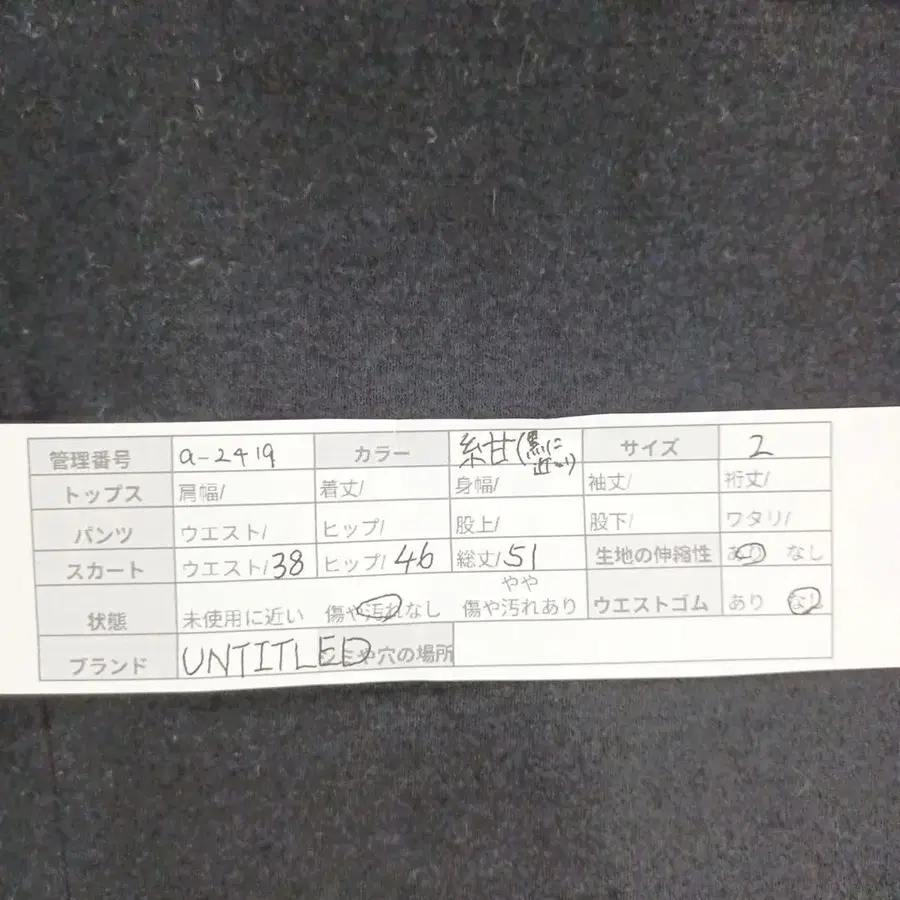 管理番号 a-2419 カラー 紺(黒に近い) サイズ 2
トップス 肩幅/ 着丈/ 身幅/ 袖丈/ 裄丈/
パンツ ウエスト/ ヒップ/ 股上/ 股下/ ワタリ/
スカート ウエスト/38 ヒップ/46 総丈/51 生地の伸縮性 あり なし
状態 未使用に近い 傷や汚れなし やや傷や汚れあり ウエストゴム あり なし
ブランド UNTITLED シミや穴の場所